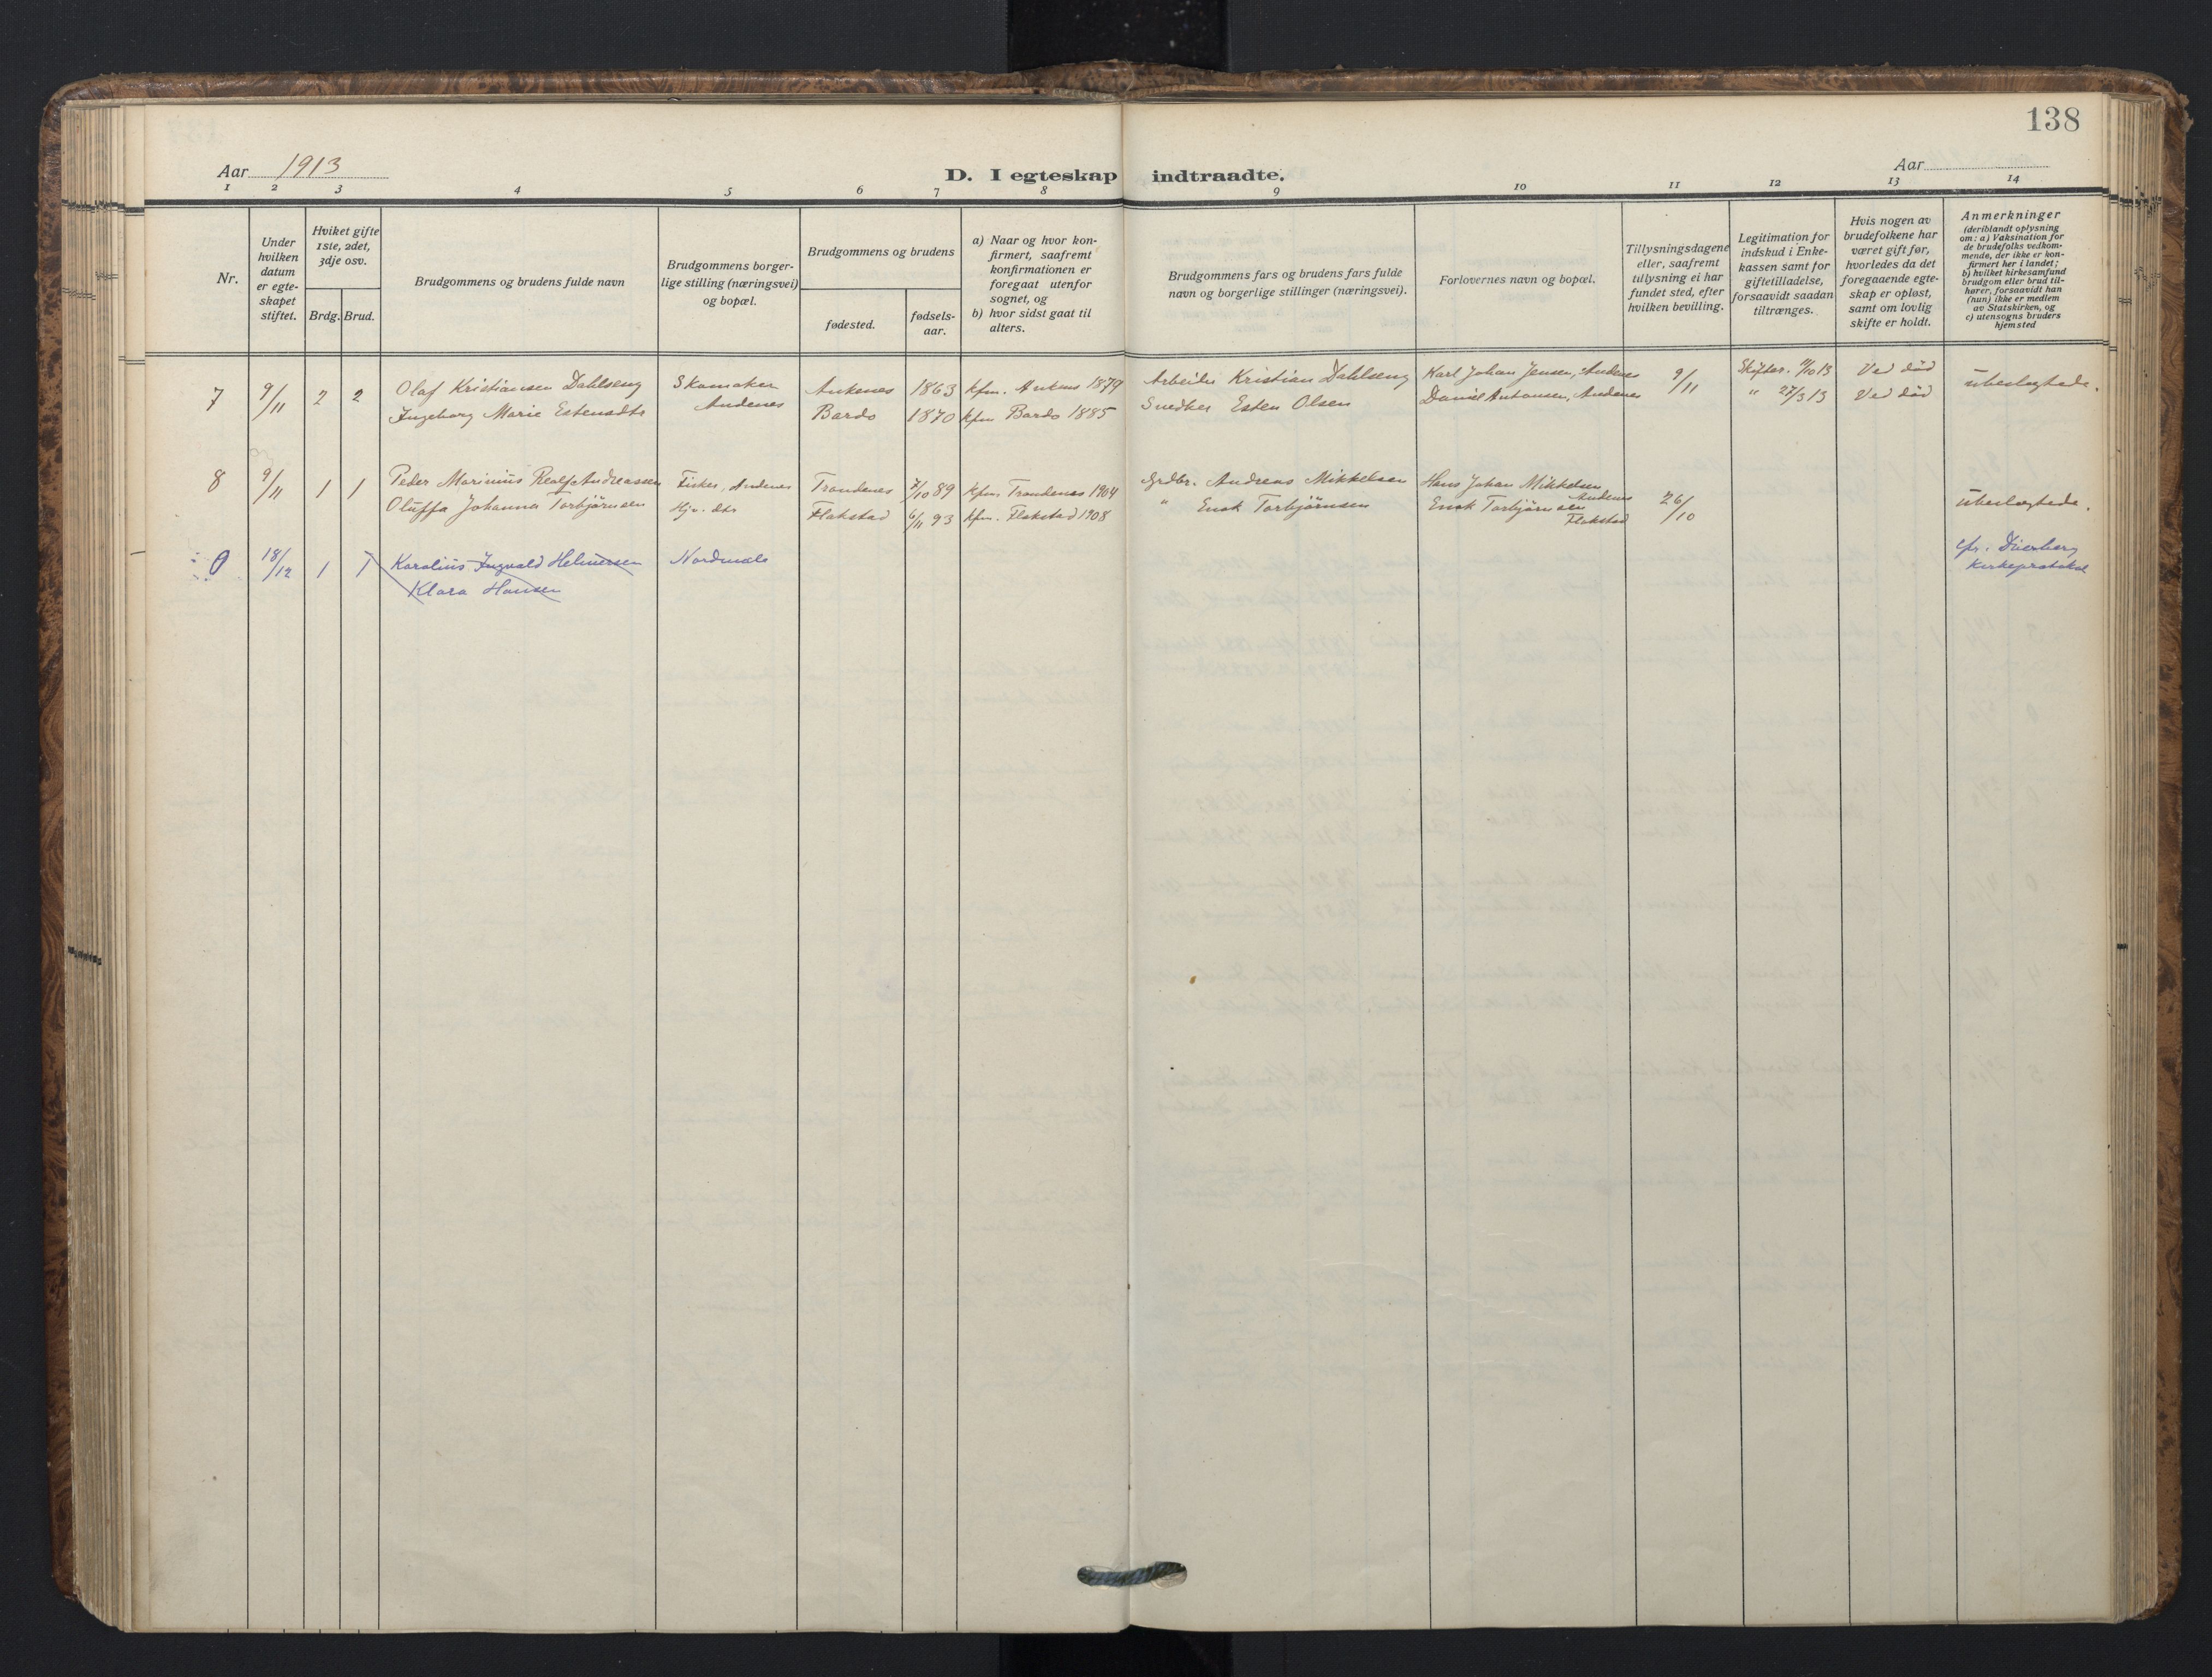 138
Aar 1913
D. I egteskap indtraadte.
Aar
1 2 3 4 5 6 7 8 9 10 11 12 13 14
Nr.
Under hvilken datum er egte-skapet stiftet.
Hvilket gifte 1ste, 2det, 3dje osv.
Brdg. Brud.
Brudgommens og brudens fulde navn
Brudgommens borger-lige stilling (næringsvei) og bopæl.
Brudgommens og brudens
fødested.
fødsels-aar.
a) Naar og hvor kon-firmert, saafremt konfirmationen er foregaat utenfor sognet, og
b) hvor sidst gaat til alters.
Brudgommens fars og brudens fars fulde navn og borgerlige stillinger (næringsvei).
Forlovernes navn og bopæl.
Tillysningsdagene eller, saafremt tillysning ei har fundet sted, efter hvilken bevilling.
Legitimation for indskud i Enke-kassen samt for giftetilladelse, forsaavidt saadan tiltrænges.
Hvis nogen av brudefolkene har været gift før, hvorledes da det foregaaende egte-skap er opløst, samt om lovlig skifte er holdt.
Anmerkninger (deriblandt oplysning om: a) Vaksination for de brudefolks vedkom-mende, der ikke er kon-firmert her i landet; b) hvilket kirkesamfund brudgom eller brud til-hører, forsaavidt han (hun) ikke er medlem av Statskirken, og c) utensogns bruders hjemsted
7 9/11 2 2 Olaf Kristiansen Dahlseng Skomaker Ankenes 1863 kfm. Ankenes 1879 Arbeider Kristian Dahlseng Karl Johan Jensen, Andenes 9/11 Skiftar. 11/10 13 Ved död ubeslegtede.
Ingeborg Marie Estensdtr Andenes Bardo 1870 kfm Bardo 1885 Snedker Esten Olsen Daniel Antonsen, Andenes " 27/3 13 Ved död
8 9/11 1 1 Peder Marinius Realf Andreassen Fisker, Andenes Trondenes 7/10 89 kfm Trondenes 1904 Grdbr. Andreas Mikkelsen Hans Johan Mikkelsen Andenes 26/10 ubeslegtede.
Oluffa Johanna Torbjörnsen Hjv. dtr Flakstad 6/11 93 kfm. Flakstad 1908 " Enok Torbjörnsen Enok Torbjörnsen Flakstad
0 18/12 1 1 Karolius Ingvald Helmersen Nordmele cfr. Dverberg
Klara Hansen kirkeprotokol